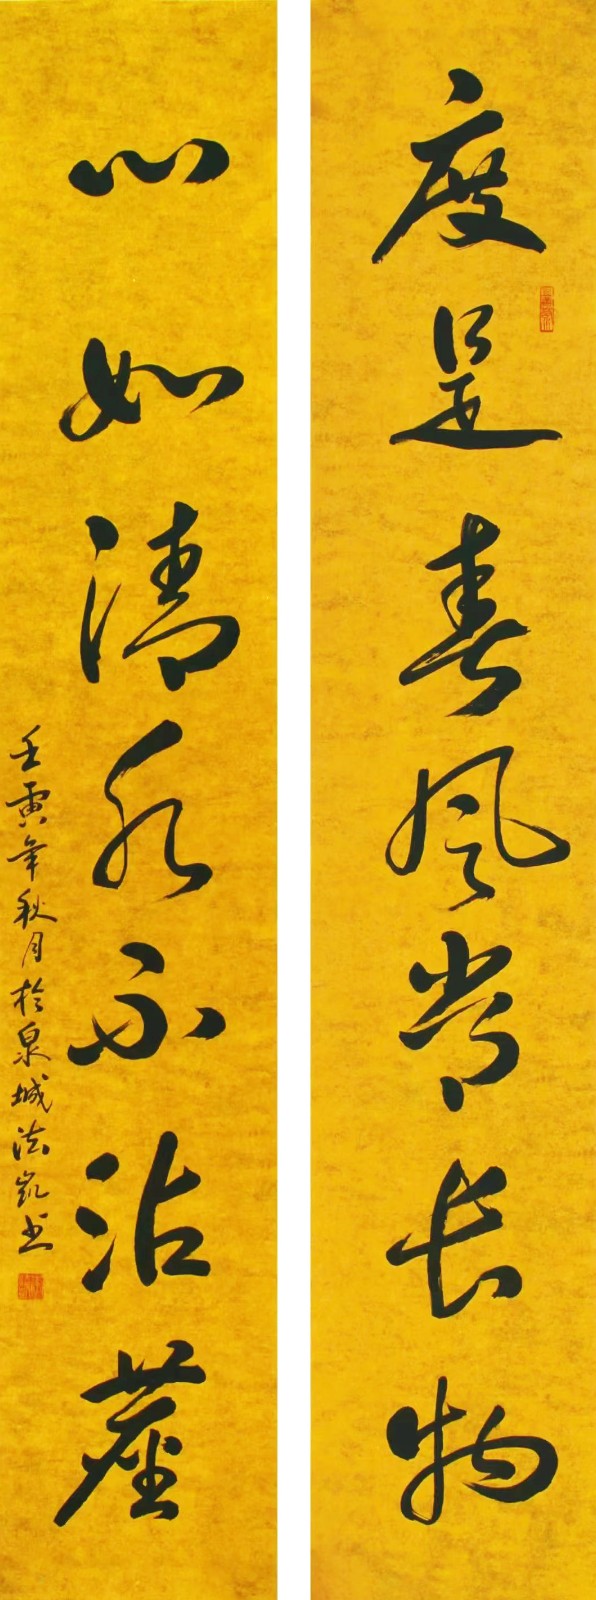 度是春风常长物
心如清水不沾塵
壬寅年秋月於泉城法凯书